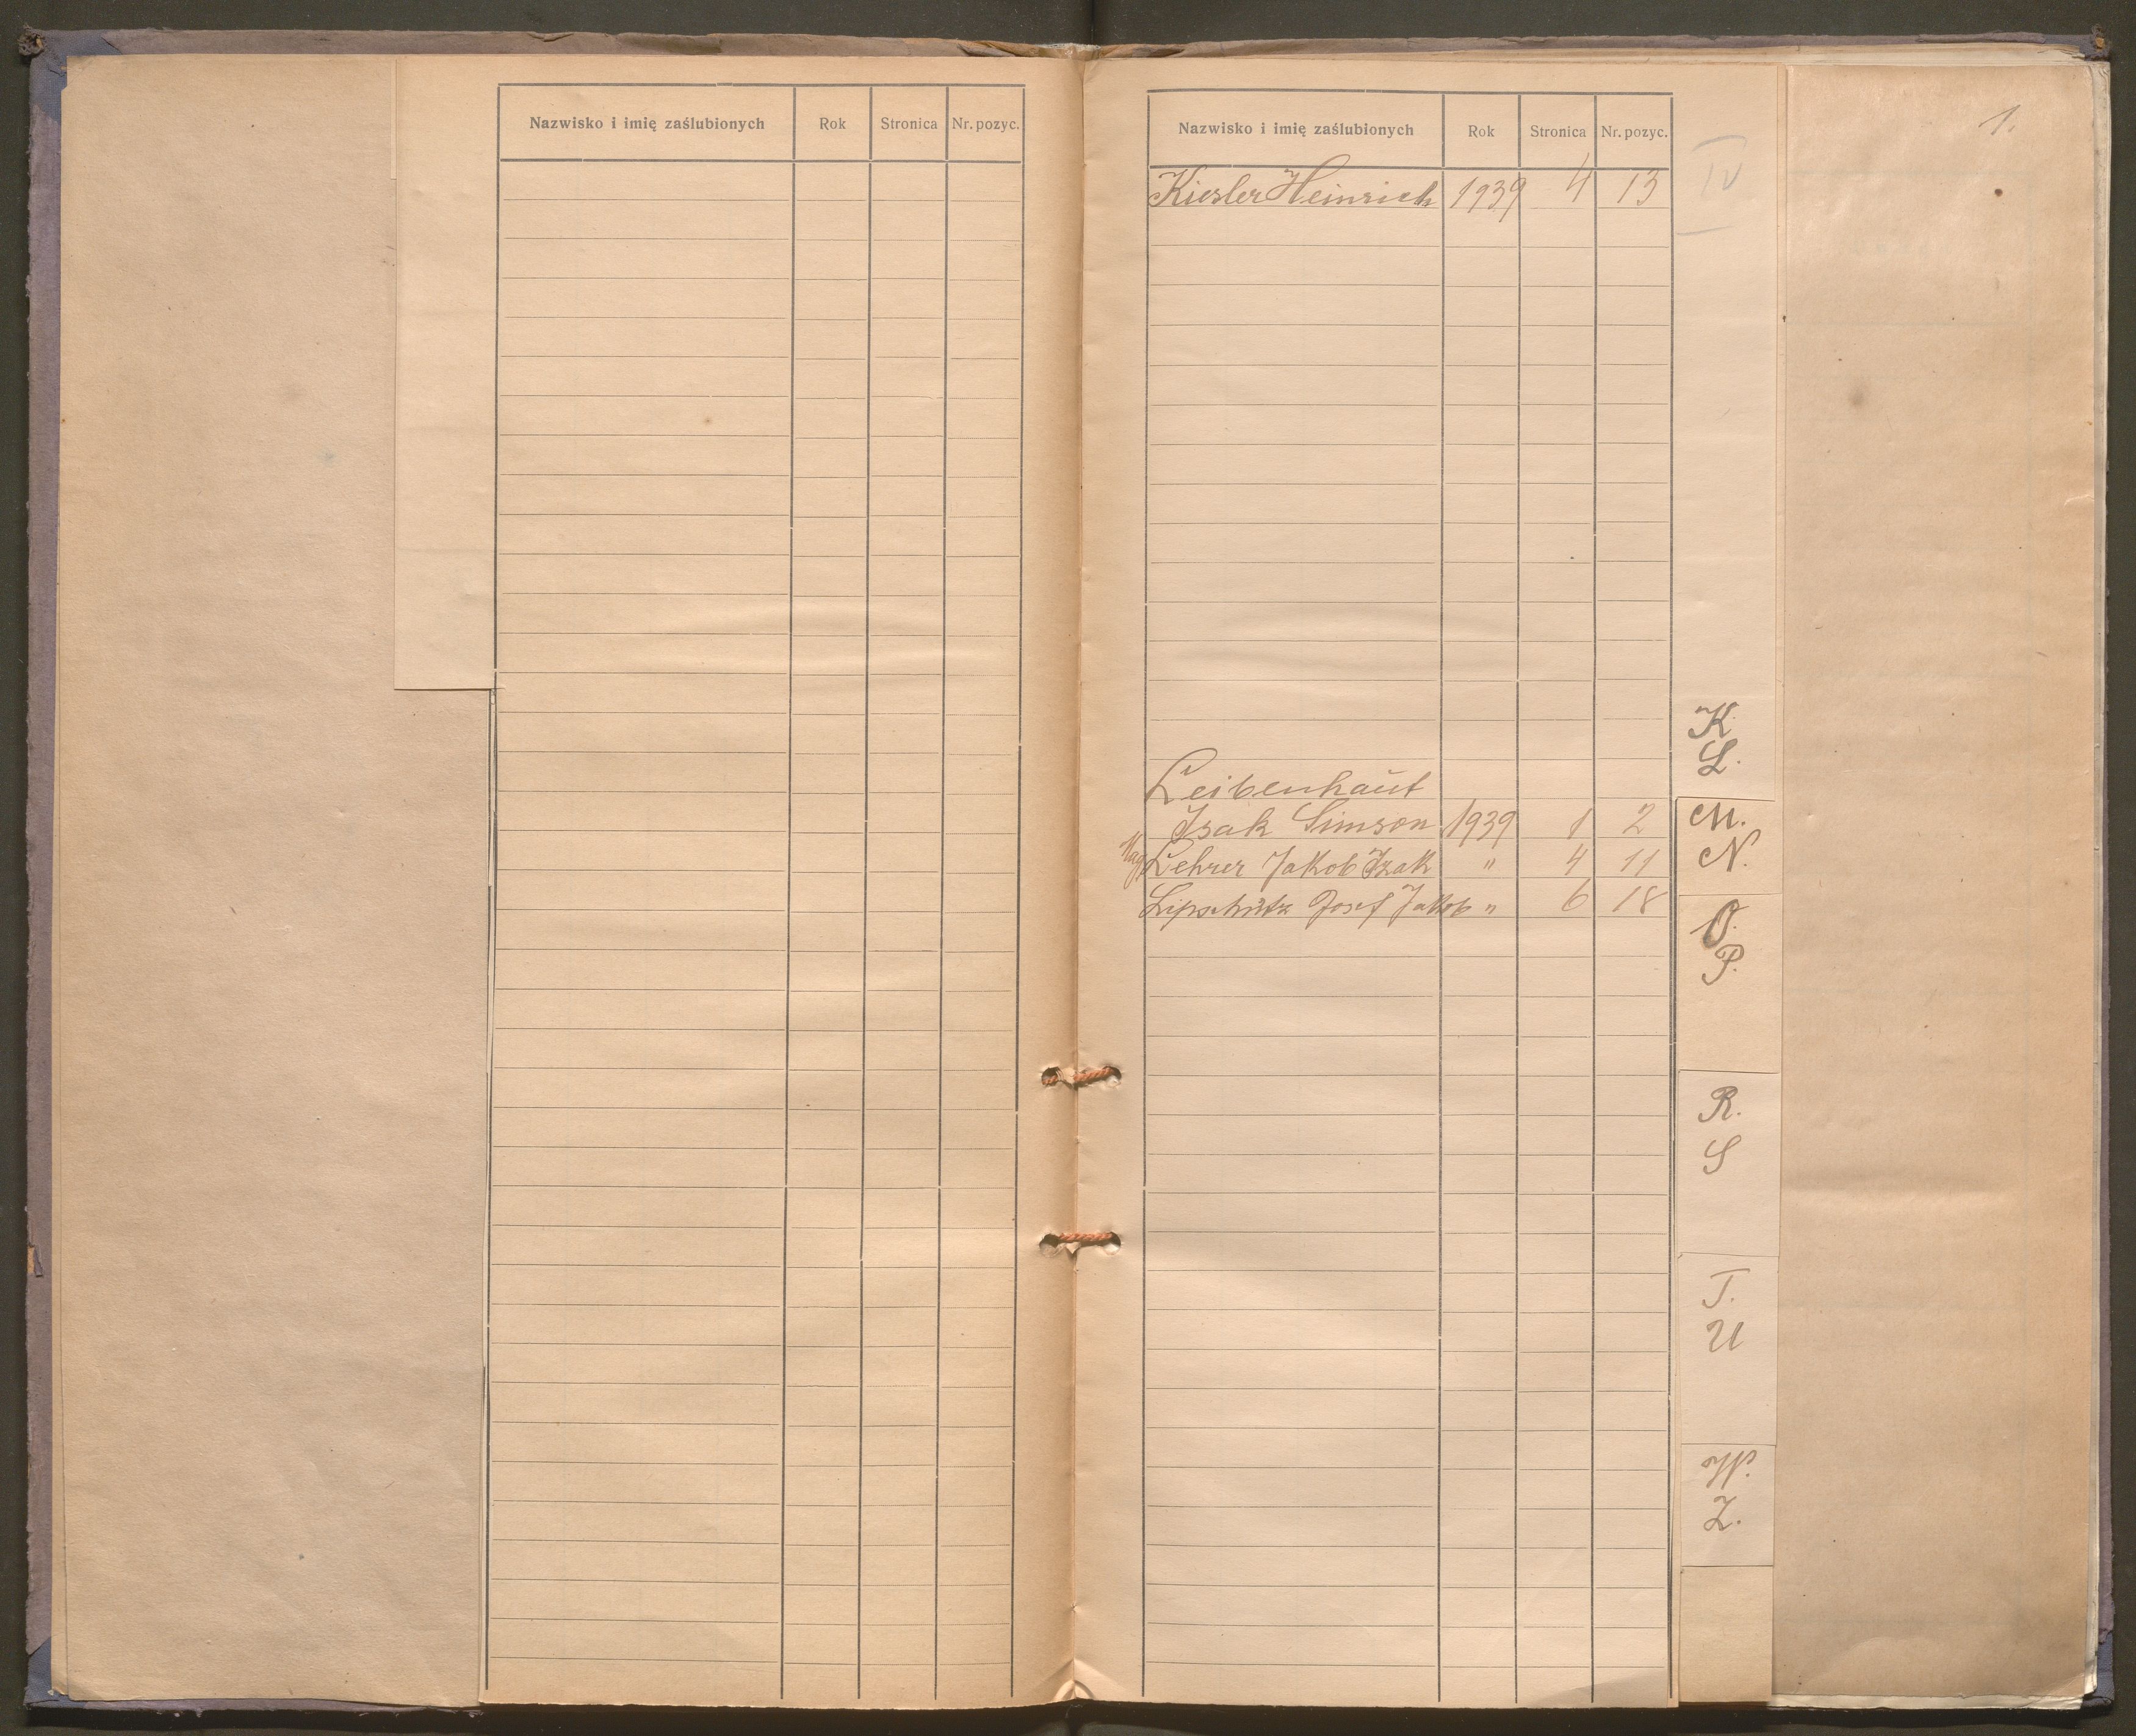 Nazwisko i imię zaślubionych Rok Stronica Nr. pozyc.
Nazwisko i imię zaślubionych Rok Stronica Nr. pozyc.
Kiesler Heinrich 1939 4 13
Leibenhaut
Isak Simson 1939 1 2
Mag. Lehrer Jakob Izak " 4 11
Lipschütz Josef Jakob " 6 18
IV
K.
L.
M.
N.
O.
P.
R.
S
T.
U
W.
Z.
1.